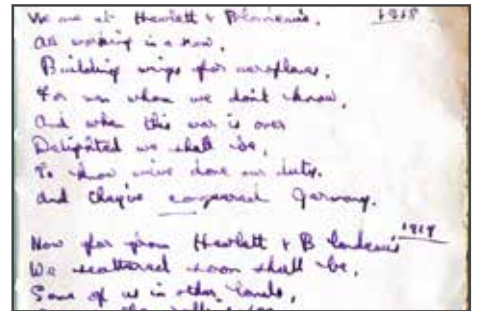 We are at Hewlett & Blondeau's, 1918
all working in a row,
Building wings for aeroplanes,
For men whom we don't know,
And when this war is over
Delighted we shall be,
To know we've done our duty.
and conquered Germany.
Now far from Hewlett & Blondeau's 1919
We scattered soon shall be,
Some of us in other lands,